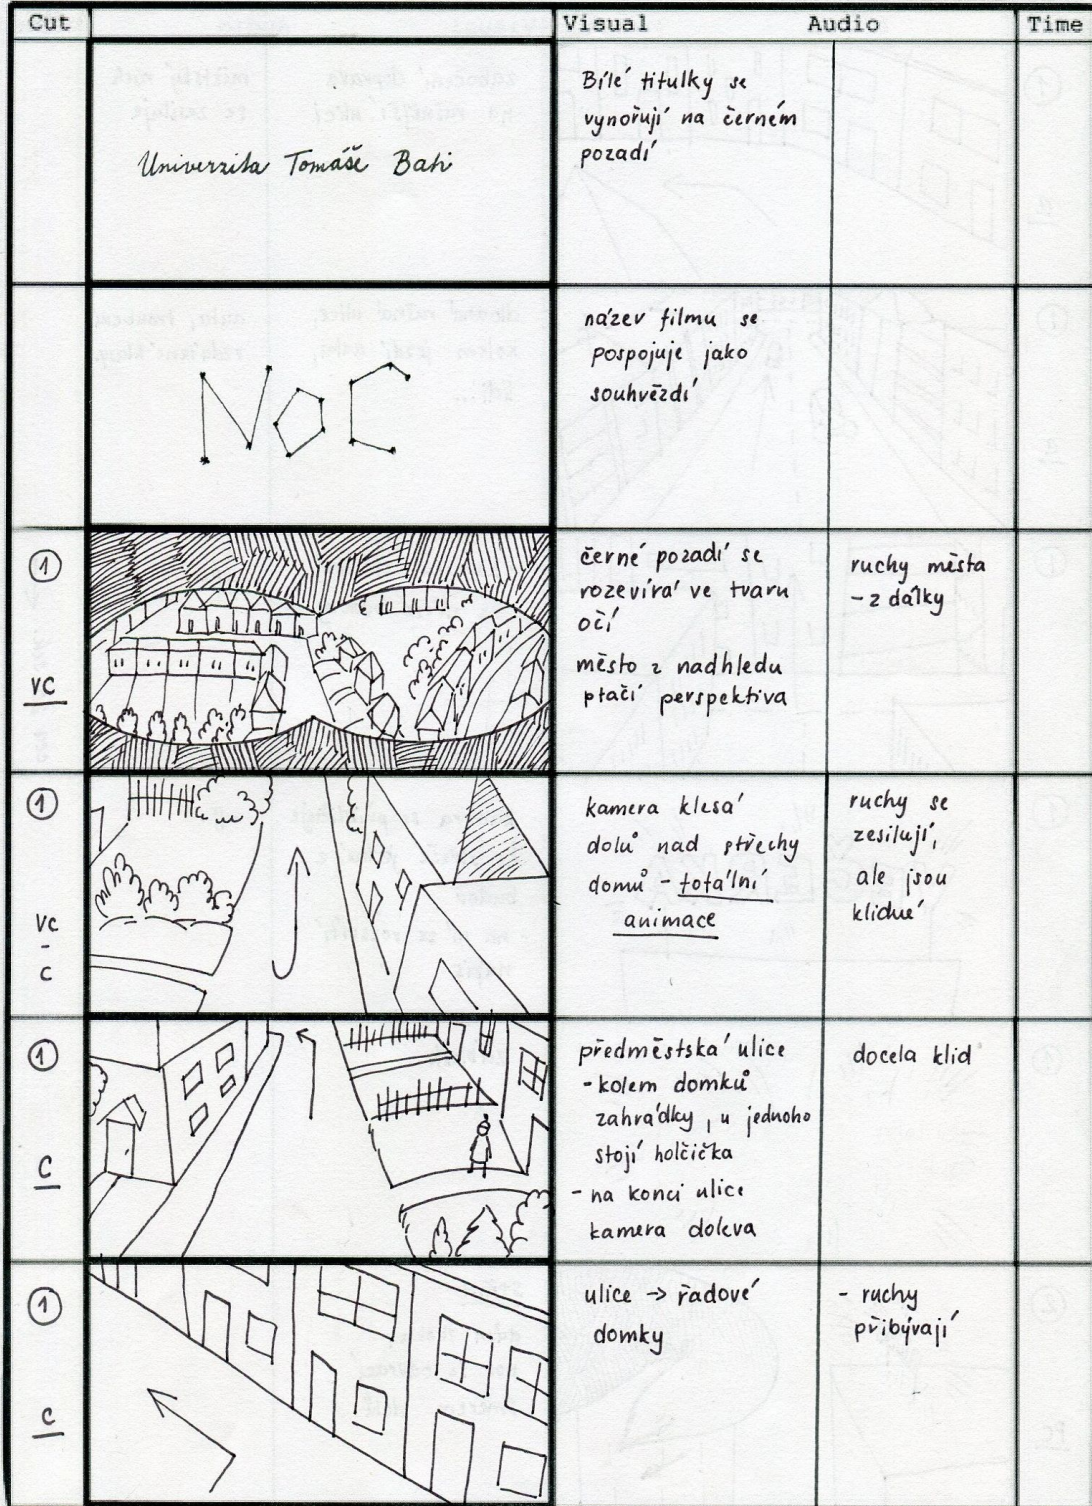 Cut Visual Audio Time
Univerzita Tomáše Bati
Bílé titulky se
vynořují na černém
pozadí
NOC
název filmu se
pospojuje jako
souhvězdí
1
VC
černé pozadí se
rozevírá ve tvaru
očí
město z nadhledu
ptačí perspektiva
ruchy města
- z dálky
1
VC
-
C
kamera klesá
dolů nad střechy
domů - totální
animace
ruchy se
zesilují,
ale jsou
klidné
1
C
předměstská ulice
- kolem domků
zahrádky, u jednoho
stojí holčička
- na konci ulice
kamera doleva
docela klid
1
C
ulice → řadové
domky
- ruchy
přibývají